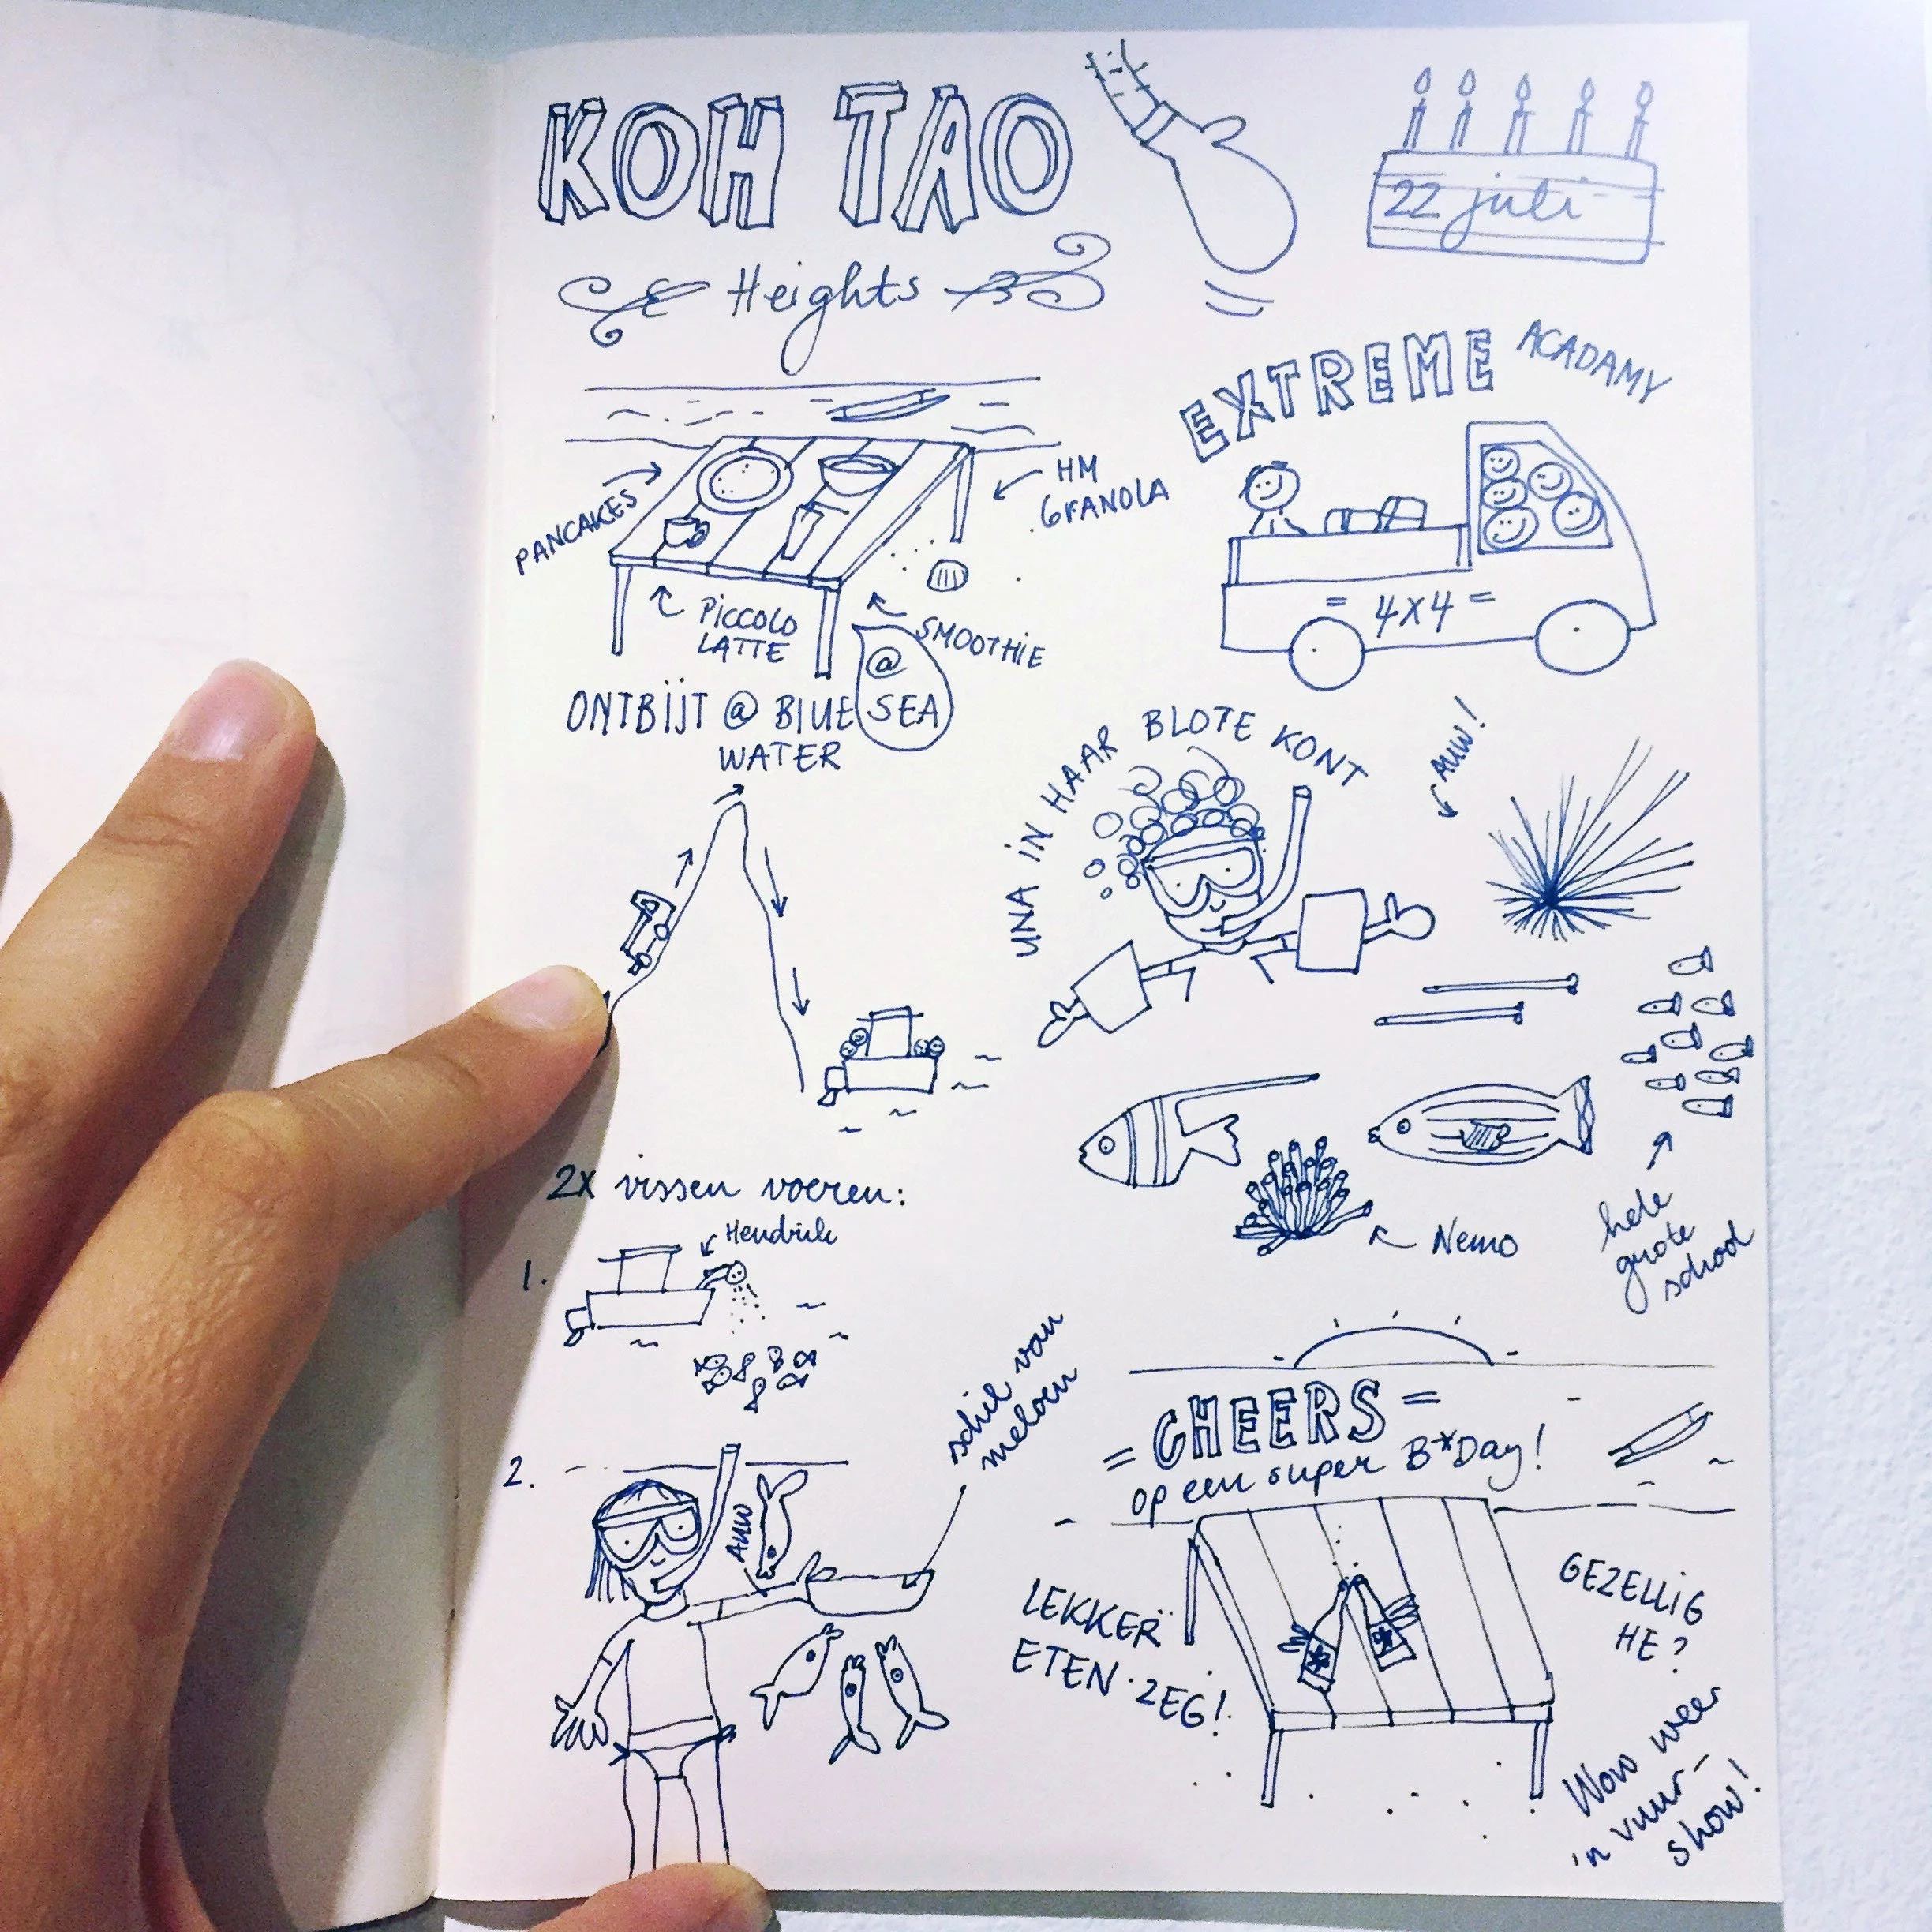 KOH TAO
Heights
22 juli
EXTREME ACADAMY
PANCAKES
HM
GRANOLA
PICCOLO
LATTE
SMOOTHIE
@
ONTBIJT @ BLUE SEA
WATER
= 4X4 =
UNA IN HAAR BLOTE KONT
AUW!
2x vissen voeren:
Hendrik
1.
Nemo
hele
grote
school
2.
AUW
schil van
meloen
= CHEERS =
op een super B*Day!
LEKKER
ETEN ZEG!
GEZELLIG
HE?
Wow weer
'n vuur-
show!